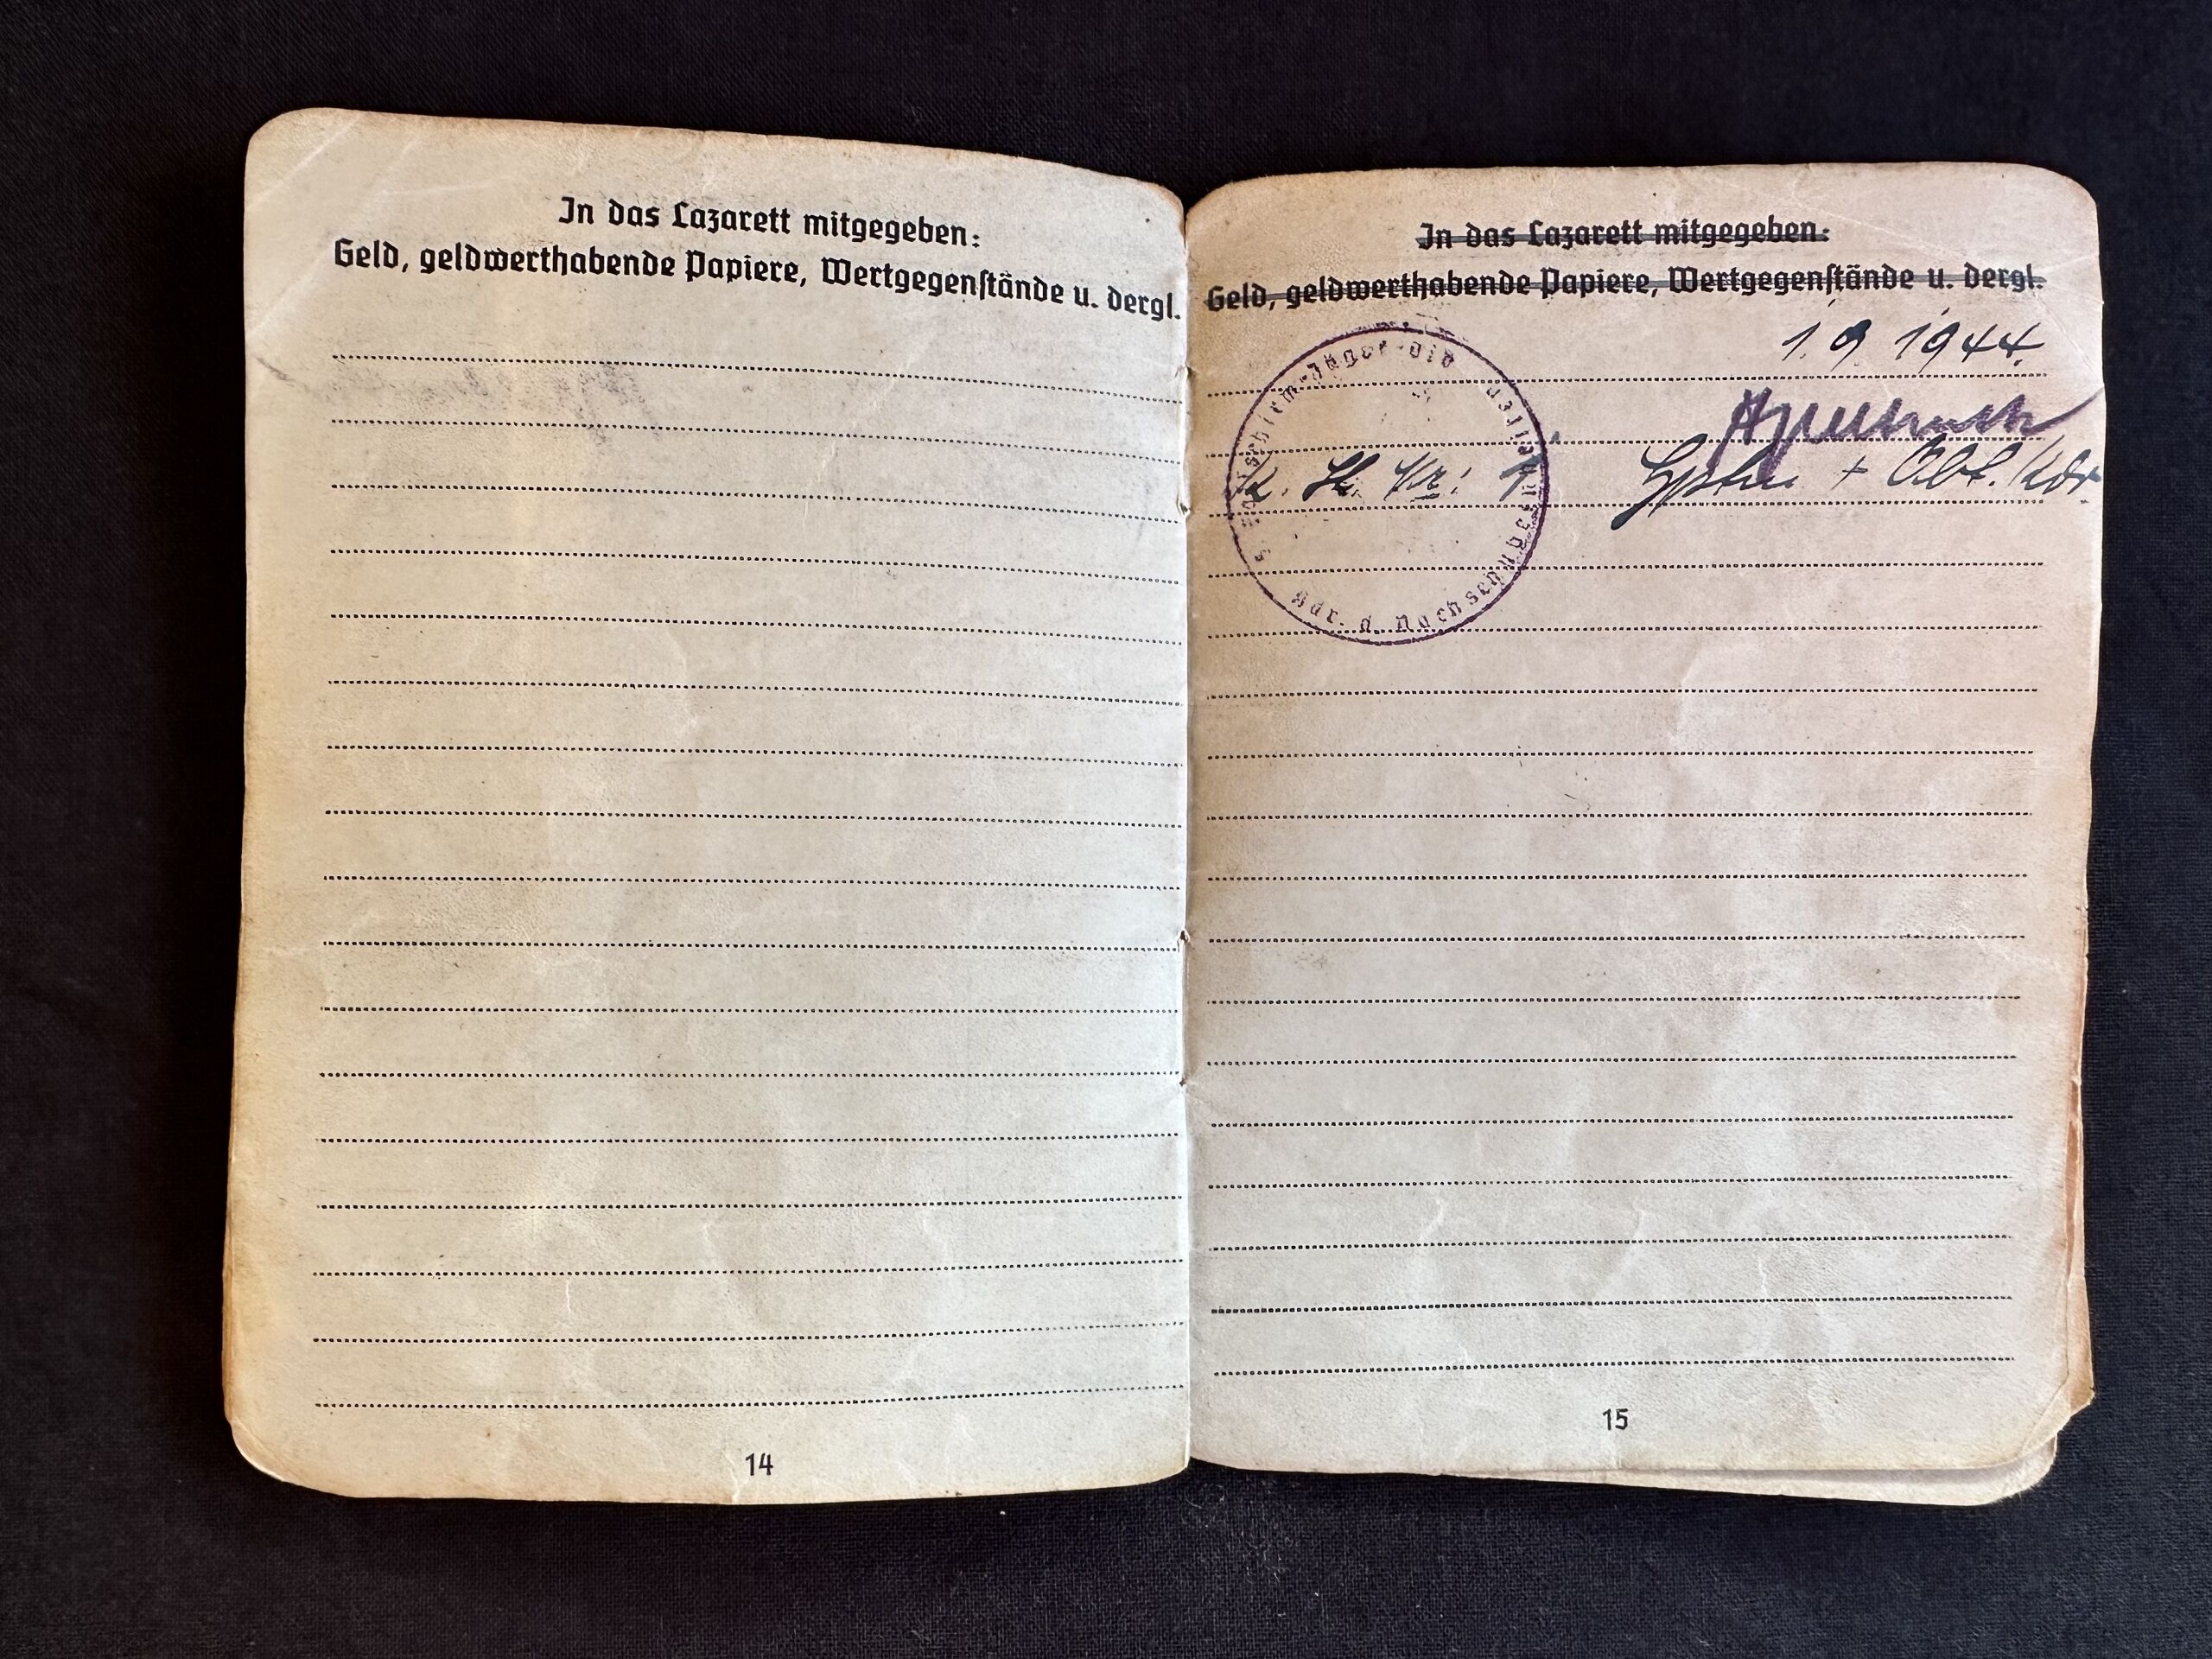 In das Lazarett mitgegeben:
Geld, geldwerthabende Papiere, Wertgegenstände u. dergl.
14
In das Lazarett mitgegeben:
Geld, geldwerthabende Papiere, Wertgegenstände u. dergl.
1.9.1944.
K. St. Nr: 1
Hptm. + Abt. Kdr.
Fallschirm-Jäger-Div.
Kdr. d. Nachschubeinheiten
15